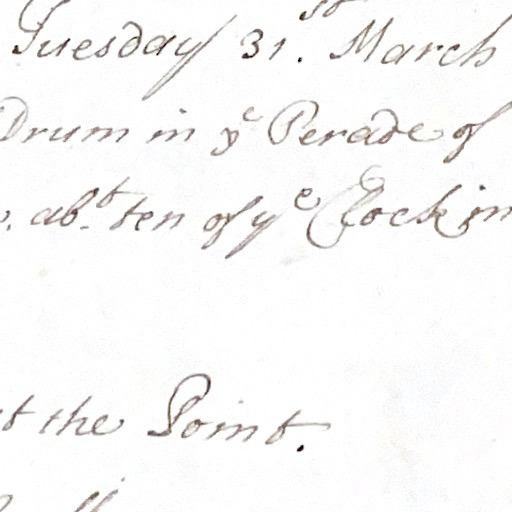 Tuesday 31st. March
Drum in ye Perade of
abt. ten of ye Clock in
the Point.